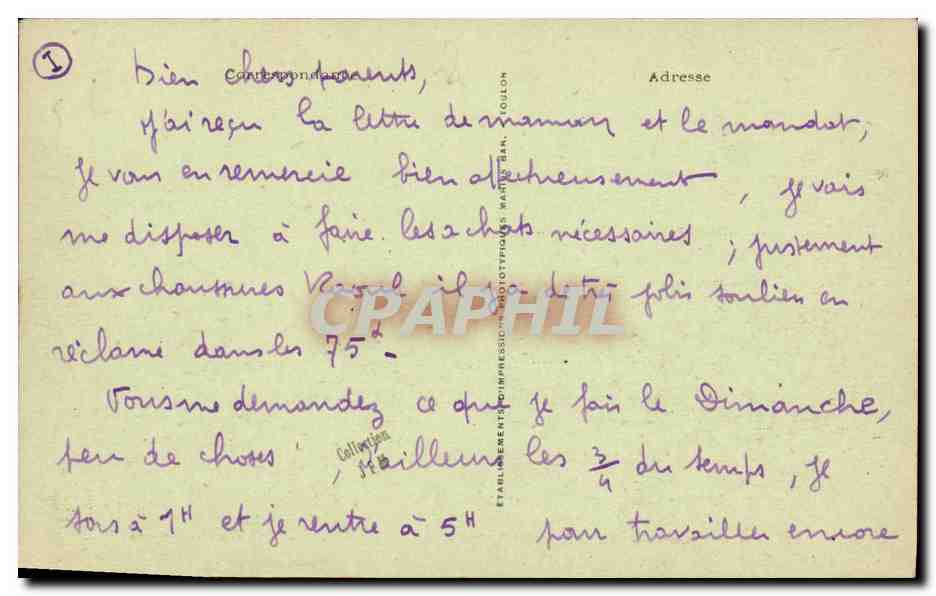 I
Correspondance
Adresse
Bien chers parents,
J'ai reçu la lettre de maman et le mandat,
je vous en remercie bien affectueusement, je vais
me disposer à faire les achats nécessaires ; justement
aux chaussures Raoul il y a de très jolis souliers en
réclame dans les 75f -
Vous me demandez ce que je fais le Dimanche,
peu de choses, d'ailleurs les 3/4 du temps, je
sors à 1H et je rentre à 5H pour travailler encore
ÉTABLISSEMENTS D'IMPRESSIONS PHOTOTYPIQUES MARIUS BAR, TOULON
Collection
CPAPHIL